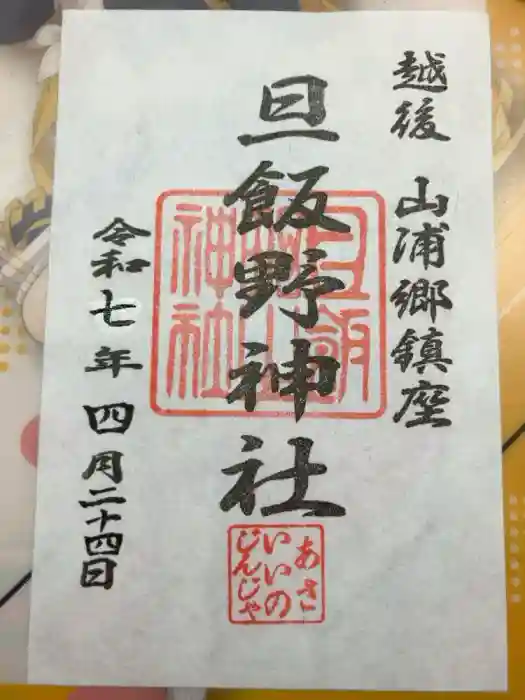 越後 山浦郷鎮座
旦飯野神社
令和七年 四月二十四日
旦飯
野山
神社
あさ
いいの
じんじゃ